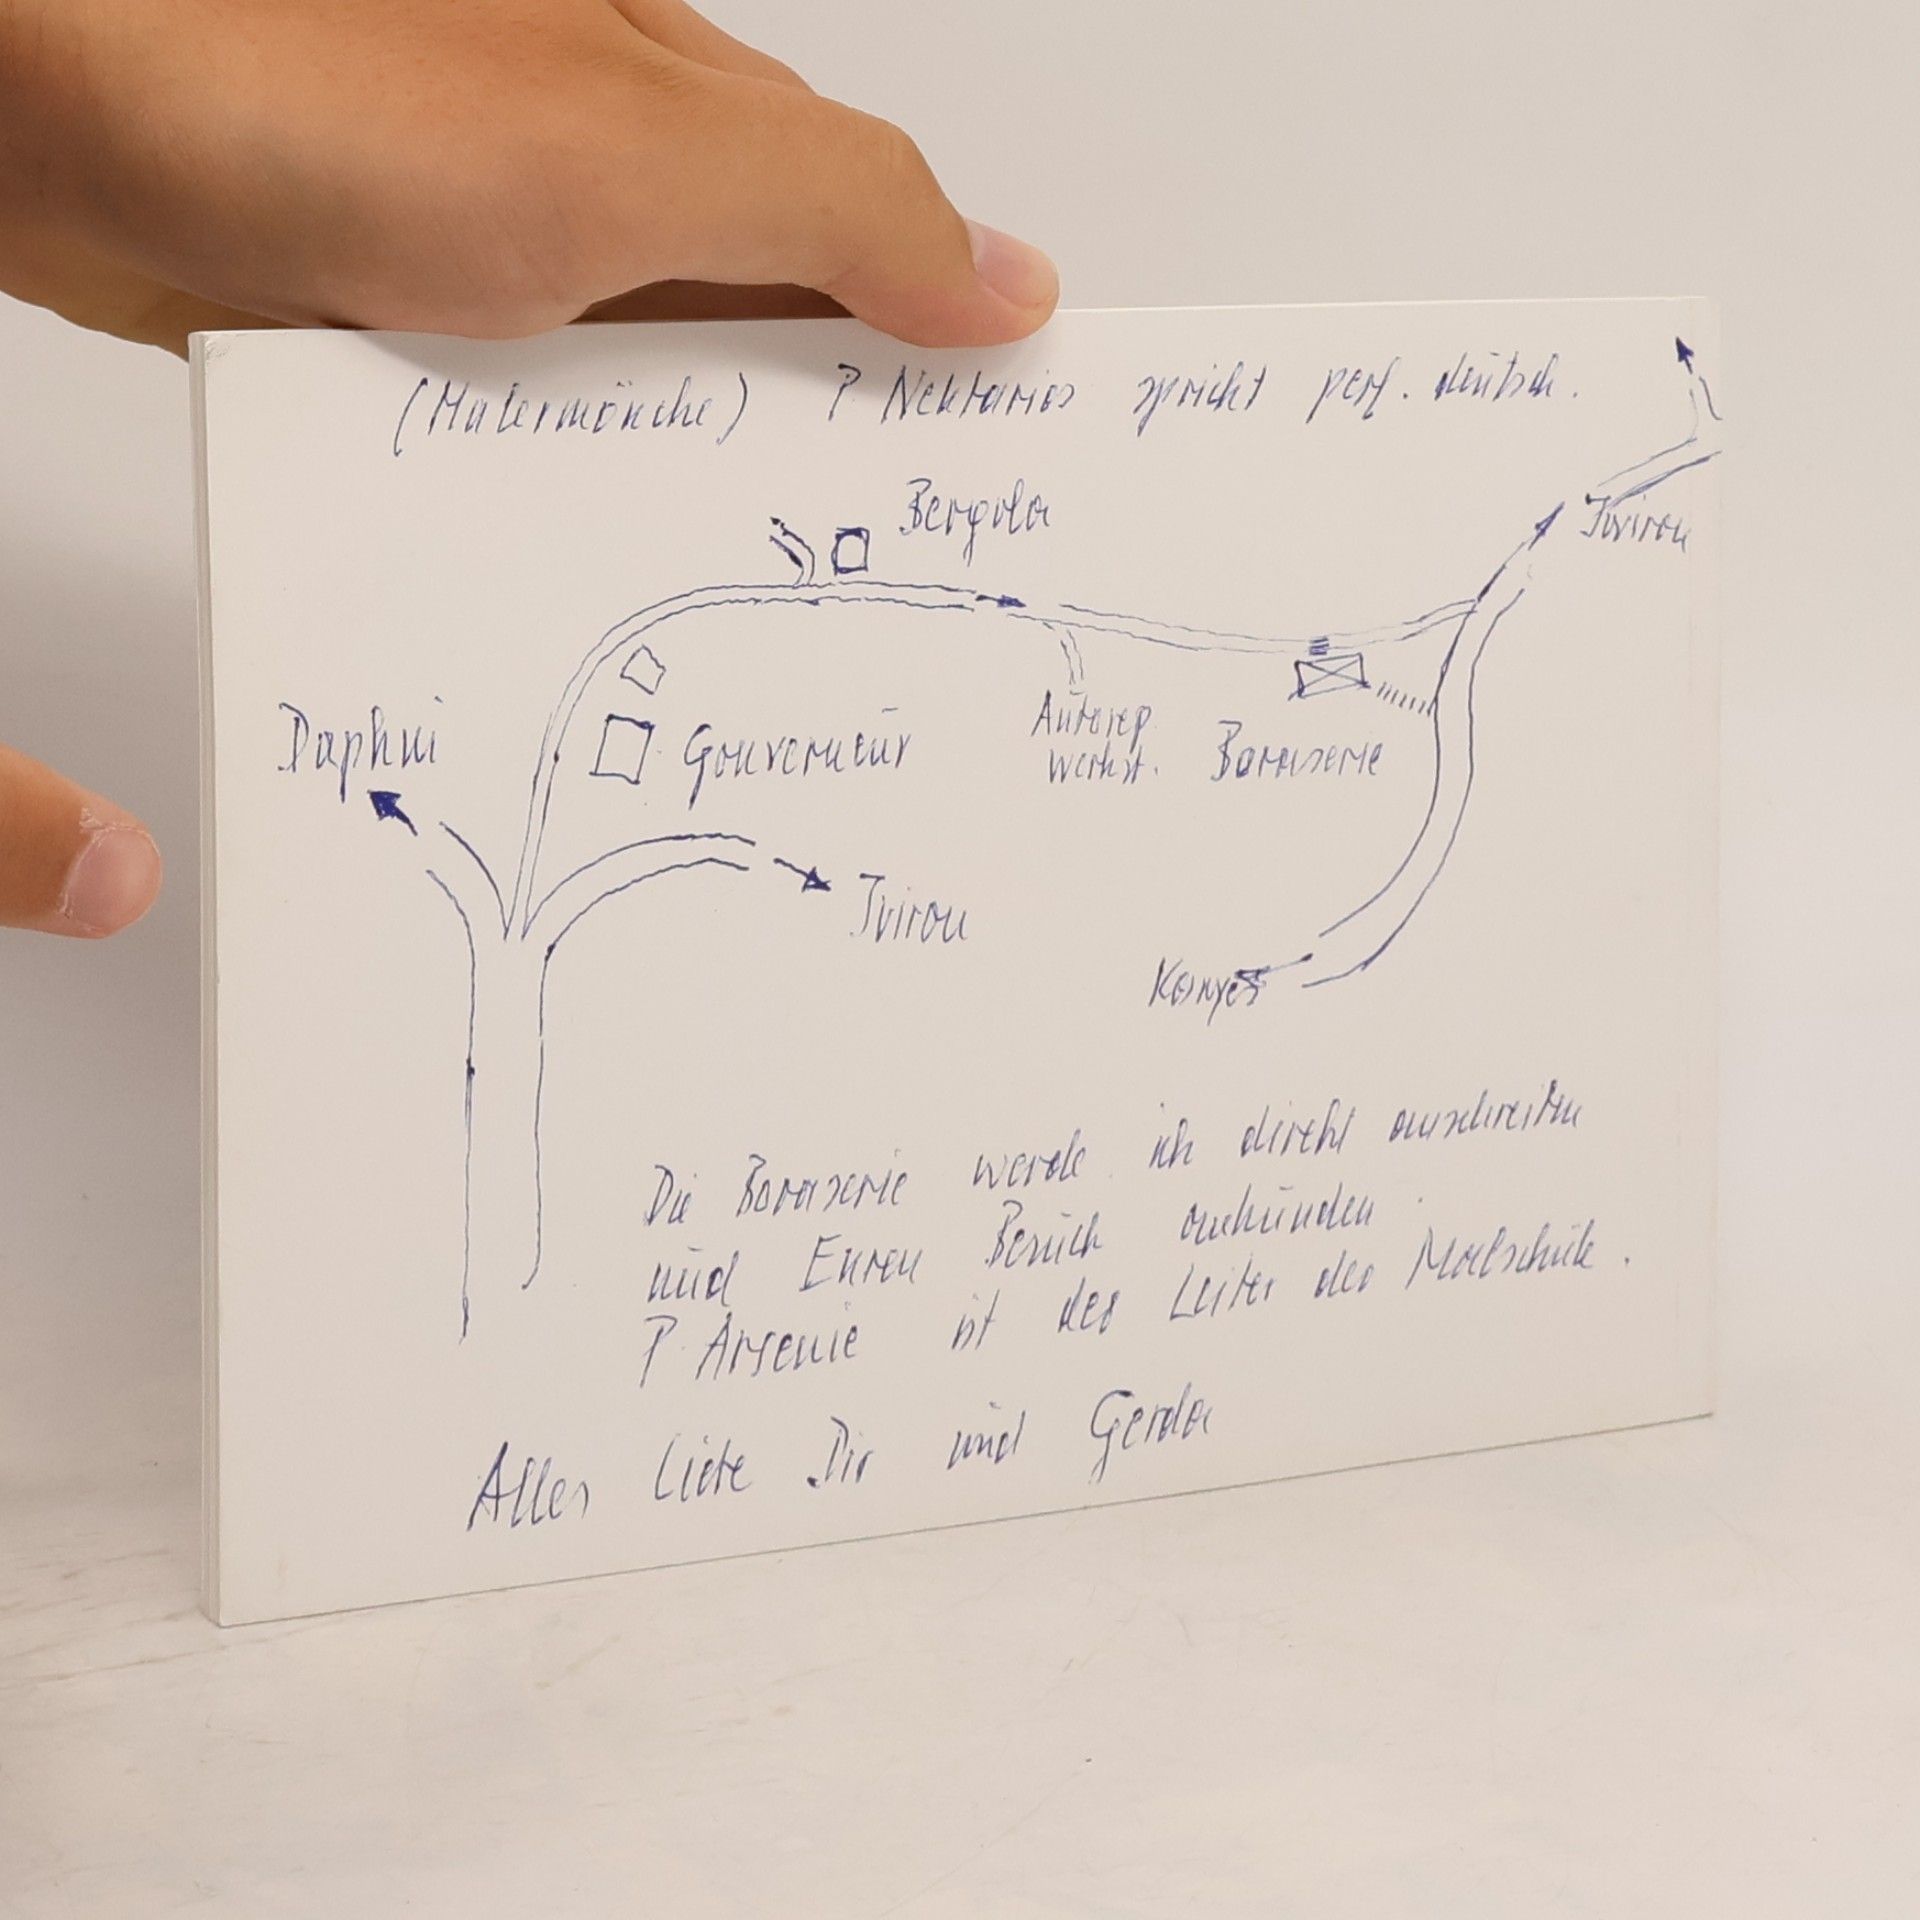 (Malermönche) P. Nektarios spricht perf. deutsch.
Bergola
Ivirou
Daphni
Gouverneur
Autorep.
Werkst.
Boraserie
Ivirou
Karyes
Die Boraserie werde ich direkt anschreiben
und Euren Besuch ankünden.
P. Arsenie ist der Leiter der Malschule.
Alles Liebe Dir und Gerda